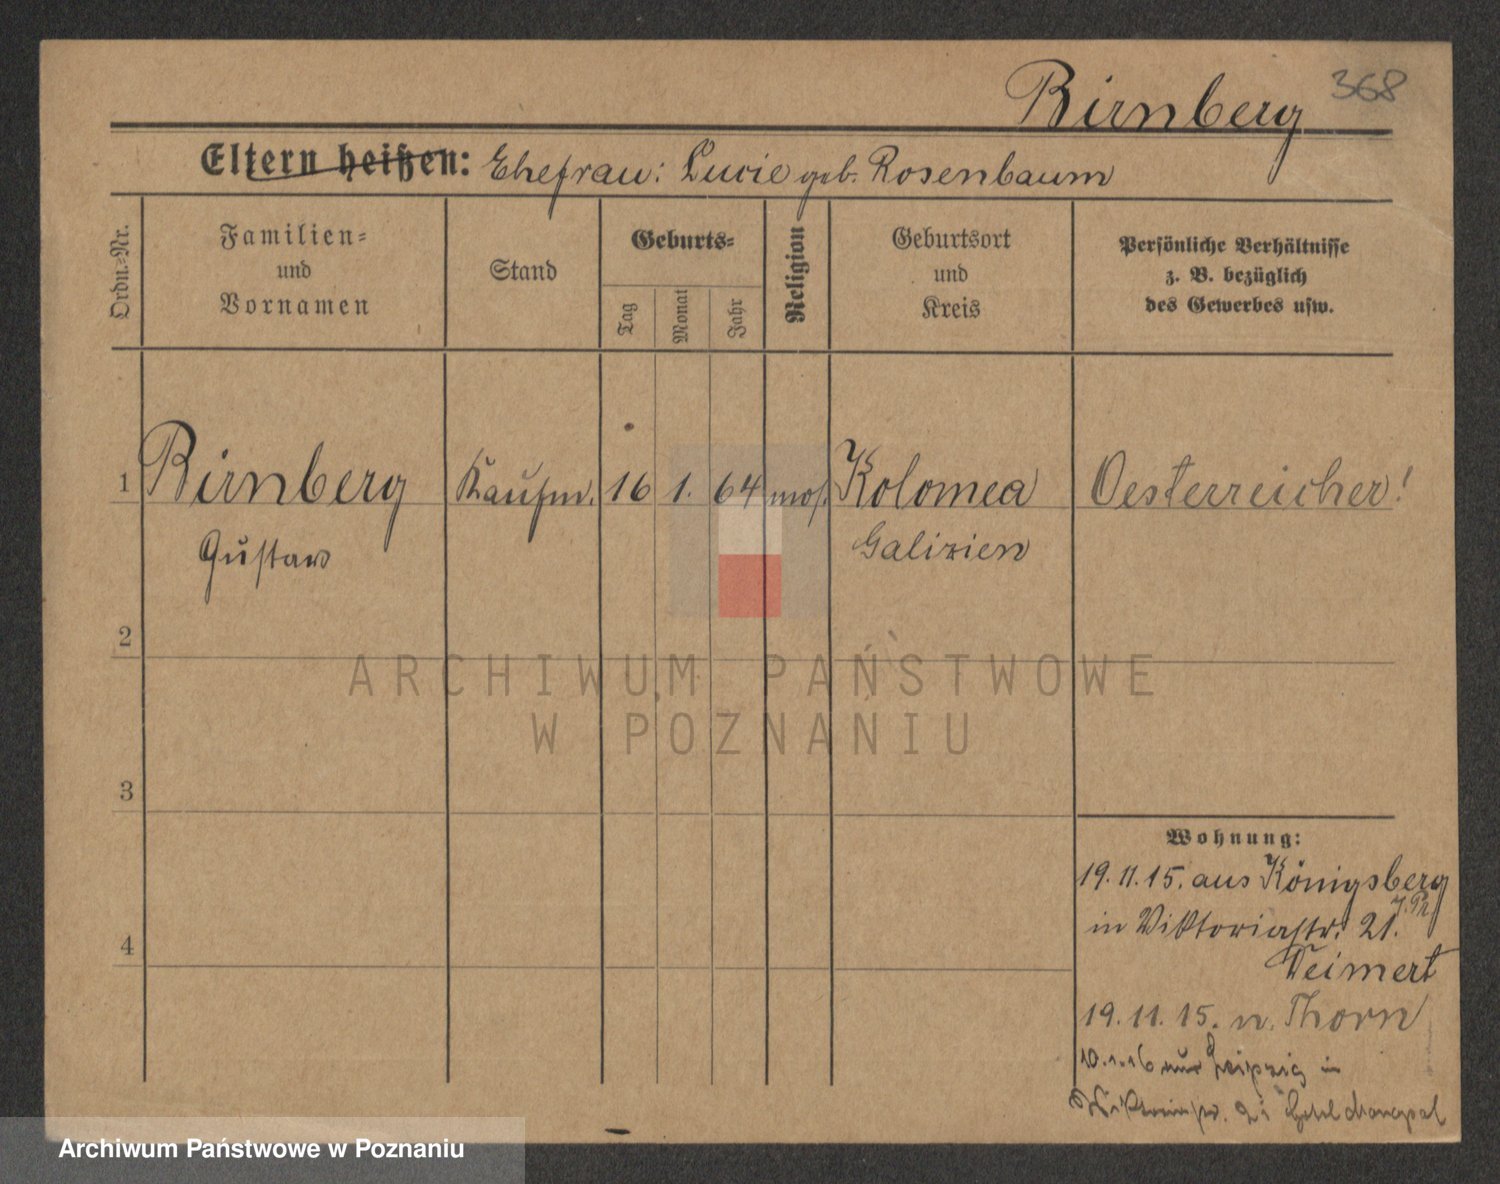 Birnberg 368
Eltern heißen: Ehefrau: Lucie geb. Rosenbaum
Ordn.-Nr.
Familien-
und
Vornamen
Stand
Geburts-
Tag
Monat
Jahr
Religion
Geburtsort
und
Kreis
Persönliche Verhältnisse
z. B. bezüglich
des Gewerbes usw.
1 Birnberg Kaufm. 16 1. 64 mos. Kolomea Oesterreicher!
Gustav Galizien
2
3
4
Wohnung:
19.11.15. aus Königsberg
in Viktoriastr. 21.
Weimert
19.11.15. n. Thorn
10.1.16 aus Leipzig in
Viktoriastr. 21 Hotel
ARCHIWUM PAŃSTWOWE
W POZNANIU
Archiwum Państwowe w Poznaniu